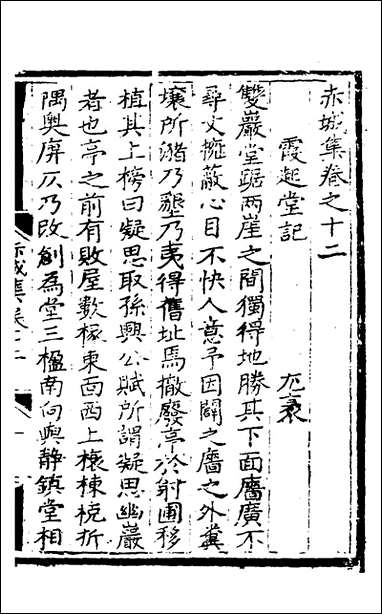 赤城集卷之十二
霞起堂記
尤袤
雙巖堂踞兩崖之間獨得地勝其下面牆廣不
尋丈擁蔽心目不快人意予因闢之牆之外糞
壤所潴乃墾乃夷得舊址焉撤廢亭於射圃移
植其上榜曰凝思取孫興公賦所謂凝思幽巖
者也亭之前有敗屋數椽東面西上榱棟梲折
隅奧庳仄乃改創為堂三楹南向與靜鎮堂相
赤城集卷十二